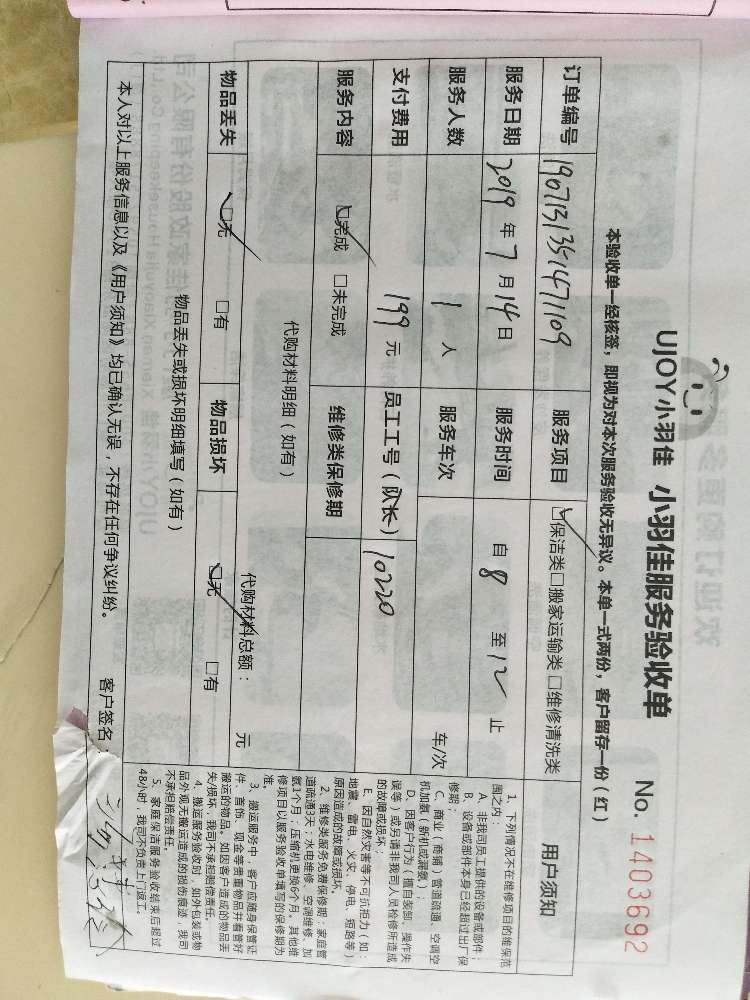 UJOY小羽佳 小羽佳服务验收单
No. 1403692
本验收单一经核签，即视为对本次服务验收无异议。本单一式两份，客户留存一份（红）
订单编号 1907131351471109 服务项目 ☑保洁类□搬家运输类 □维修清洗类
服务日期 2019 年 7 月 14 日 服务时间 自 8 至 12 止
服务人数 1 人 服务车次 车/次
支付费用 199 元 员工工号（队长） 10220
服务内容 ☑完成 □未完成 维修类保修期
代购材料明细（如有）
代购材料总额： 元
物品丢失 ☑无 □有 物品损坏 ☑无 □有
物品丢失或损坏明细填写（如有）
本人对以上服务信息以及《用户须知》均已确认无误，不存在任何争议纠纷。 客户签名：
用户须知
1、下列情况不在维修项目的维保范
围之内：
A、非我司员工提供的设备或部件；
B、设备或部件本身已经超过出厂保
修期；
C、商业（商铺）管道疏通、空调空
机加氨（新机或漏氨）；
D、因客户行为（擅自装卸、操作失
误等）或另请非我司人员检修所造成
的故障或损坏；
E、因自然灾害等不可抗拒力（如：
地震、雷电、火灾、停电、短路等）
原因造成的故障或损坏。
2、维修类服务免费保修期：家庭管
道疏通3天；水电维修、空调维修、加
氨1个月；压缩机更换6个月。其他维
修项目以服务验收单填写的保修期为
准。
3、搬运服务中，客户应随身保管证
件、首饰、现金等贵重物品并看管好
搬运的物品。如因客户造成的物品丢
失/损坏，我司不承担赔偿责任。
4、搬运服务验收时，如外包装或物
品外观无搬运造成的损伤痕迹，我司
不承担赔偿责任。
5、家庭保洁服务验收结束后超过
48小时，我司不负责上门返工。